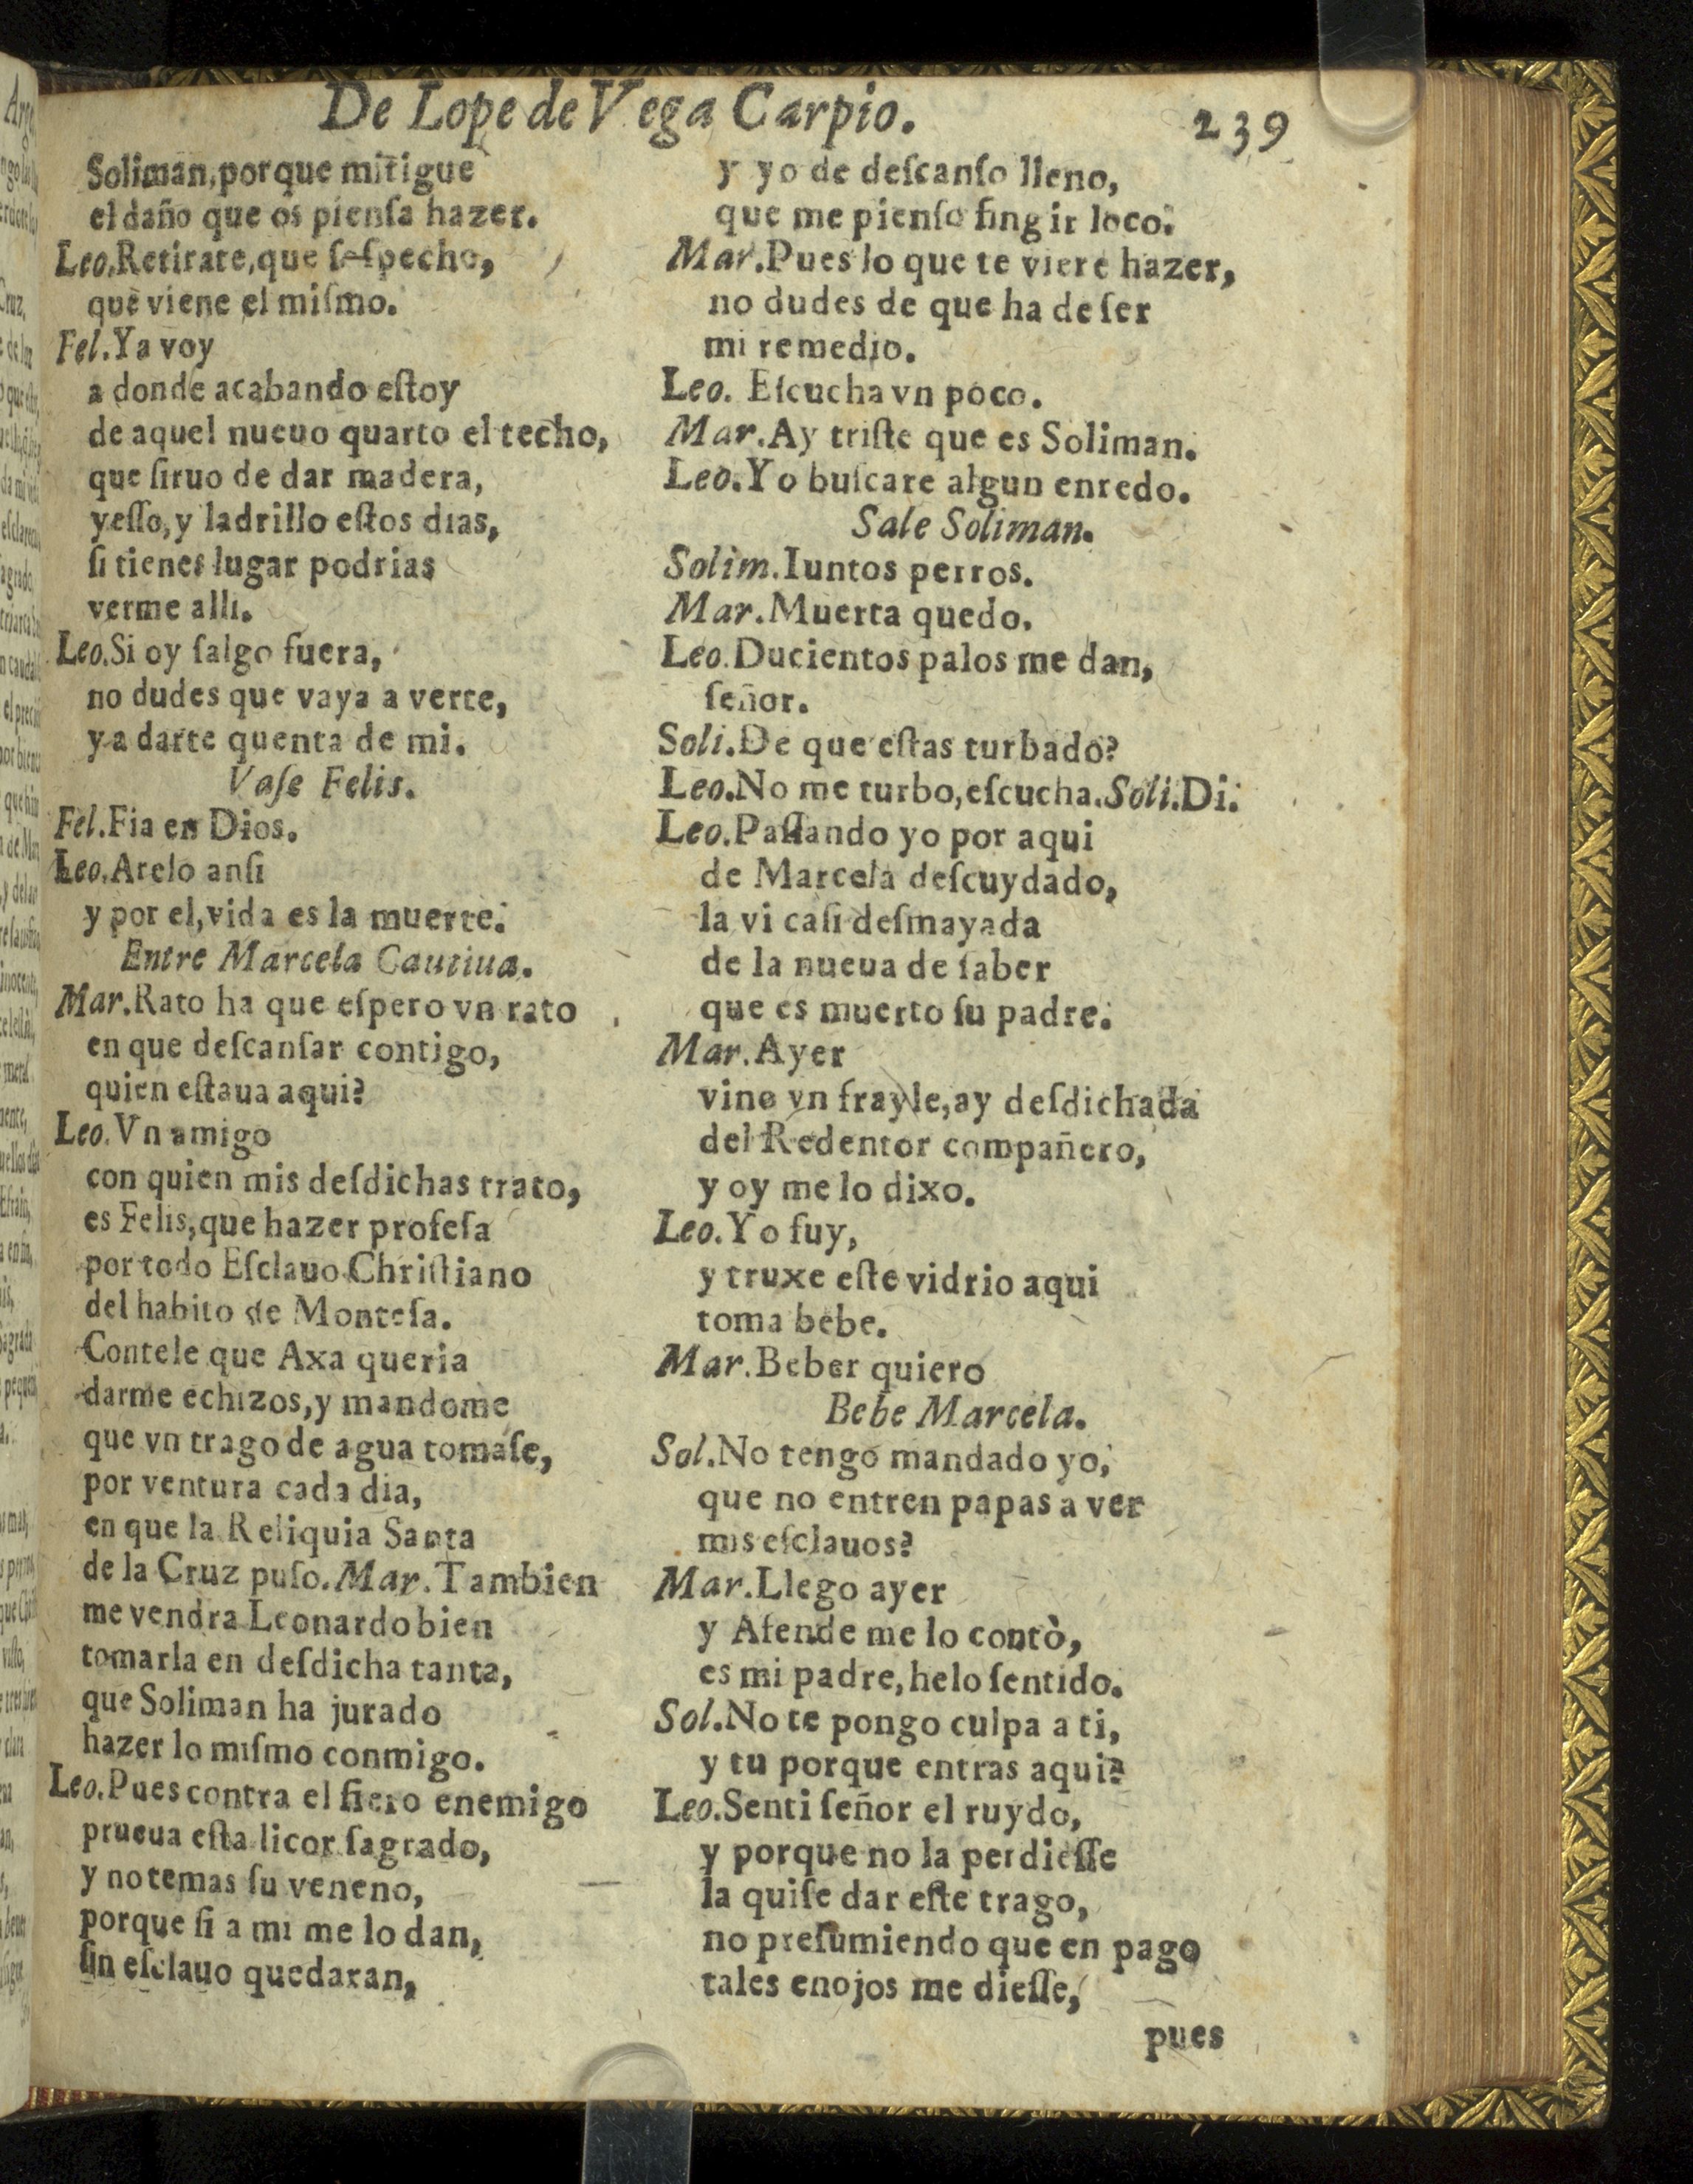 De Lope de Vega Carpio.
239
Soliman,porque mitigue
el daño que os pienſa hazer.
Leo.Retirate,que ſoſpecho,
que viene el miſmo.
Fel.Ya voy
a donde acabando eſtoy
de aquel nueuo quarto el techo,
que ſiruo de dar madera,
yeſſo,y ladrillo eſtos dias,
ſi tienes lugar podrias
verme alli.
Leo.Si oy ſalgo fuera,
no dudes que vaya a verte,
y a darte quenta de mi.
Vaſe Felis.
Fel.Fia en Dios.
Leo.Arelo anſi
y por el,vida es la muerte.
Entre Marcela Cautiua.
Mar.Rato ha que eſpero vn rato
en que deſcanſar contigo,
quien eſtaua aqui?
Leo.Vn amigo
con quien mis deſdichas trato,
es Felis,que hazer profeſa
por todo Eſclauo Chriſtiano
del habito de Monteſa.
Contele que Axa queria
darme echizos,y mandome
que vn trago de agua tomaſe,
por ventura cada dia,
en que la Reliquia Santa
de la Cruz puſo.Mar.Tambien
me vendra Leonardo bien
tomarla en deſdicha tanta,
que Soliman ha jurado
hazer lo miſmo conmigo.
Leo.Pues contra el fiero enemigo
prueua eſta licor ſagrado,
y no temas ſu veneno,
porque ſi a mi me lo dan,
ſin eſclauo quedaran,
y yo de deſcanſo lleno,
que me pienſo fingir loco.
Mar.Pues lo que te viere hazer,
no dudes de que ha de ſer
mi remedio.
Leo. Eſcucha vn poco.
Mar.Ay triſte que es Soliman.
Leo.Yo buſcare algun enredo.
Sale Soliman.
Solim.Iuntos perros.
Mar.Muerta quedo.
Leo.Ducientos palos me dan,
ſeñor.
Soli.De que eſtas turbado?
Leo.No me turbo,eſcucha.Soli.Di.
Leo.Paſſando yo por aqui
de Marcela deſcuydado,
la vi caſi deſmayada
de la nueua de ſaber
que es muerto ſu padre.
Mar.Ayer
vino vn frayle,ay deſdichada
del Redentor compañero,
y oy me lo dixo.
Leo.Yo fuy,
y truxe eſte vidrio aqui
toma bebe.
Mar.Beber quiero
Bebe Marcela.
Sol.No tengo mandado yo,
que no entren papas a ver
mis eſclauos?
Mar.Llego ayer
y Atende me lo contò,
es mi padre,helo ſentido.
Sol.No te pongo culpa a ti,
y tu porque entras aqui?
Leo.Senti ſeñor el ruydo,
y porque no la perdieſſe
la quiſe dar eſte trago,
no preſumiendo que en pago
tales enojos me dieſſe,
pues